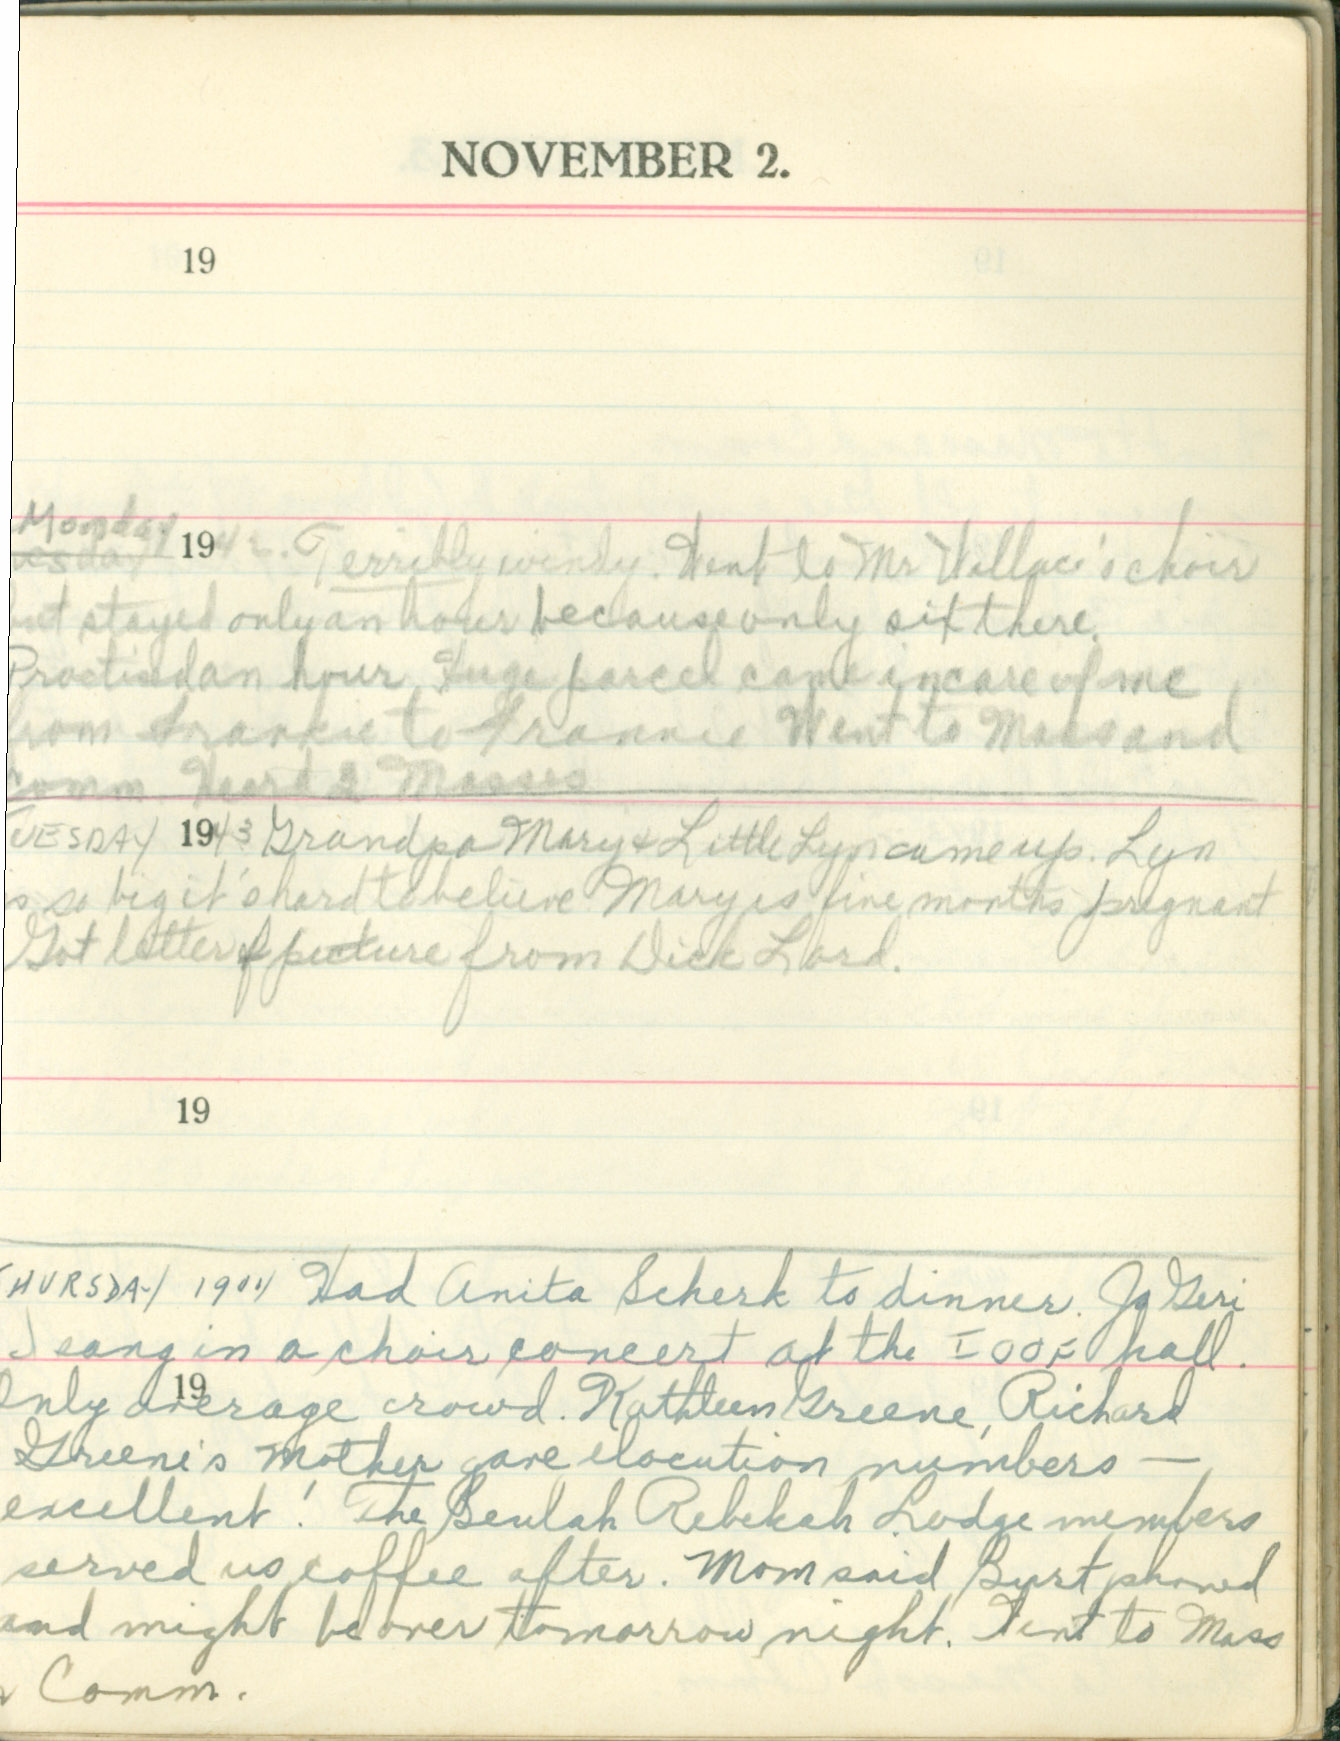 NOVEMBER 2.
19
Monday
uesday 1942. Terribly windy. Went to Mr Wallace's choir
but stayed only an hour because only six there.
Practised an hour. Huge parcel came in care of me
from Frankie to Frannie Went to Mass and
Comm. Heard 2 Masses
TUESDAY 1943 Grandpa Mary & Little Lyn came up. Lyn
is so big it's hard to believe. Mary is five months pregnant
Got letter & picture from Dick Lard.
19
THURSDAY 1944 Had Anita Scherk to dinner. Jo Geri
I sang in a choir concert at the IOOF hall.
19
Only average crowd. Kathleen Greene, Richard
Greene's mother gave elocution numbers —
excellent! The Beulah Rebekah Lodge members
served us coffee after. Mom said Burt phoned
and might be over tomorrow night. Went to Mass
Comm.